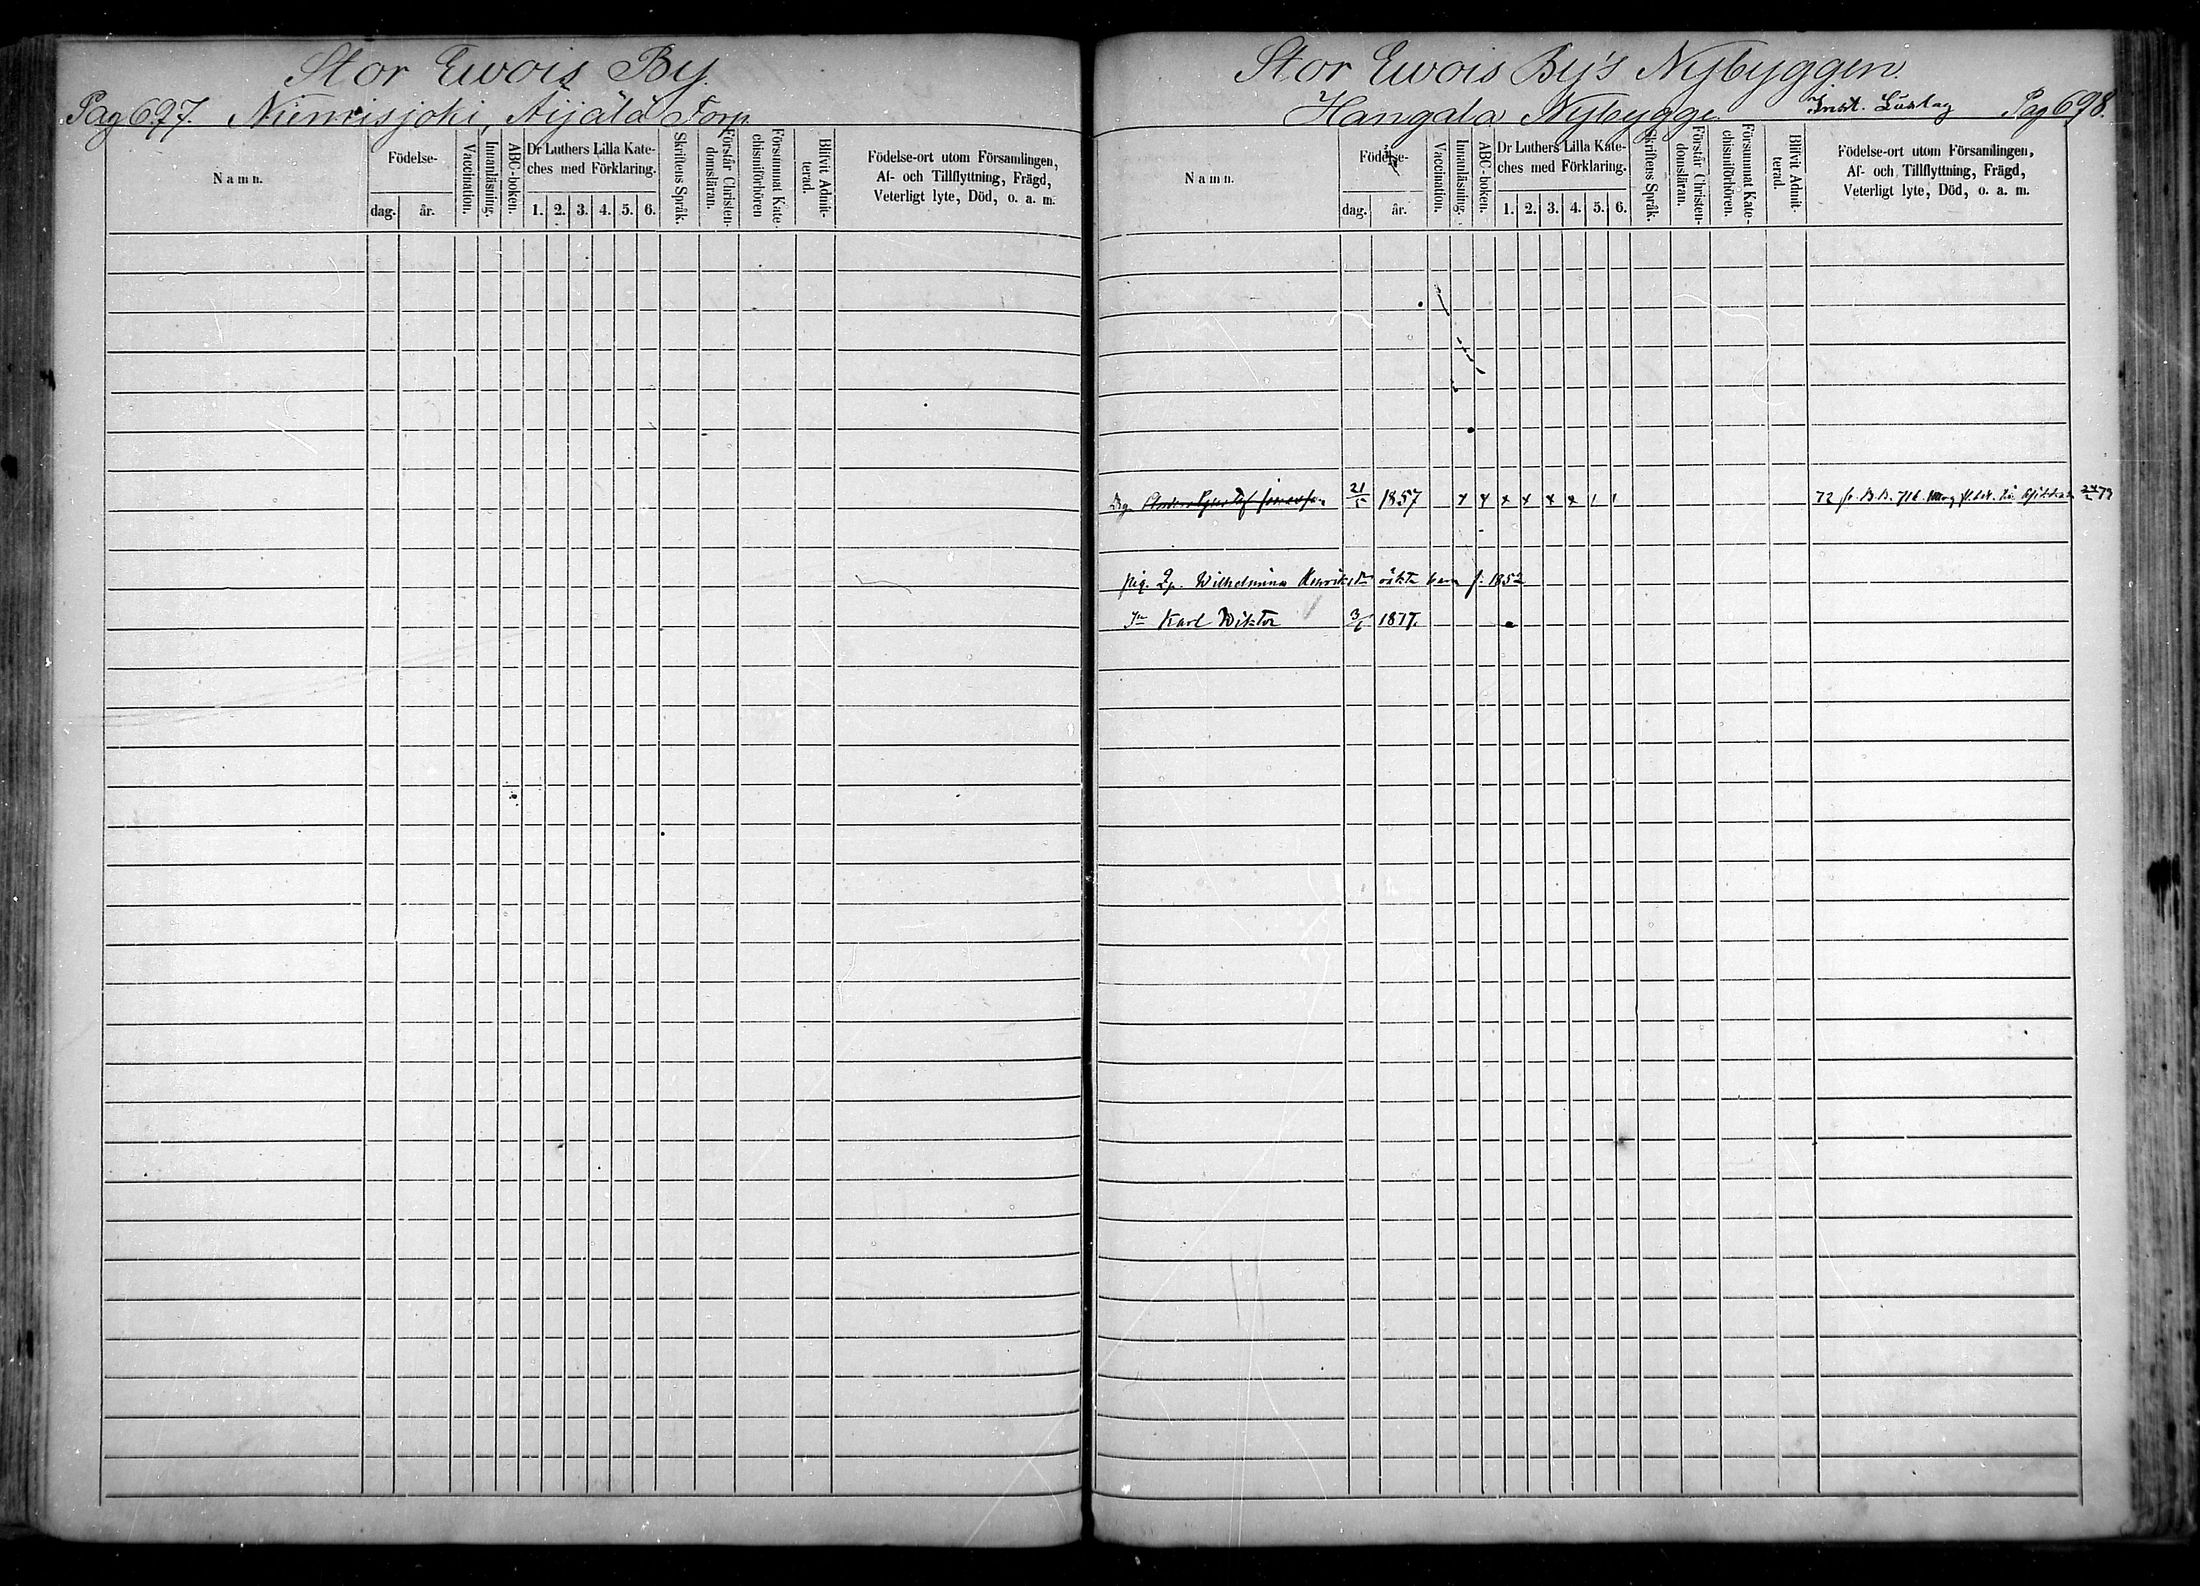 Stor Ewois By.
Pag 697. Niemisjoki, Äijälä Torp
Namn.
Födelse-
dag.
år.
Vaccination.
Innanläsning.
ABC-boken.
Dr Luthers Lilla Kate-
ches med Förklaring.
1. 2. 3. 4. 5. 6.
Skriftens Språk.
Förstår Christen-
domsläran.
Försummat Kate-
chismiförhören
Blifvit Admit-
terad.
Födelse-ort utom Församlingen,
Af- och Tillflyttning, Frägd,
Veterligt lyte, Död, o. a. m.
Stor Ewois By's Nybyggen.
Hangala Nybygge. Inst. Pag 698.
Namn.
Födelse-
dag.
år.
Vaccination.
Innanläsning.
ABC-boken.
Dr Luthers Lilla Kate-
ches med Förklaring.
1. 2. 3. 4. 5. 6.
Skriftens Språk.
Förstår Christen-
domsläran.
Försummat Kate-
chismiförhören.
Blifvit Admit-
terad.
Födelse-ort utom Församlingen,
Af- och Tillflyttning, Frägd,
Veterligt lyte, Död, o. a. m.
Drg. Anders Gustaf 21/5 1857 x x x x x x 1 1 72 fr. B.B. 716.
pig. Wilhelmina oäkta barn f. 1852
Karl Wiktor 3/6 1877.